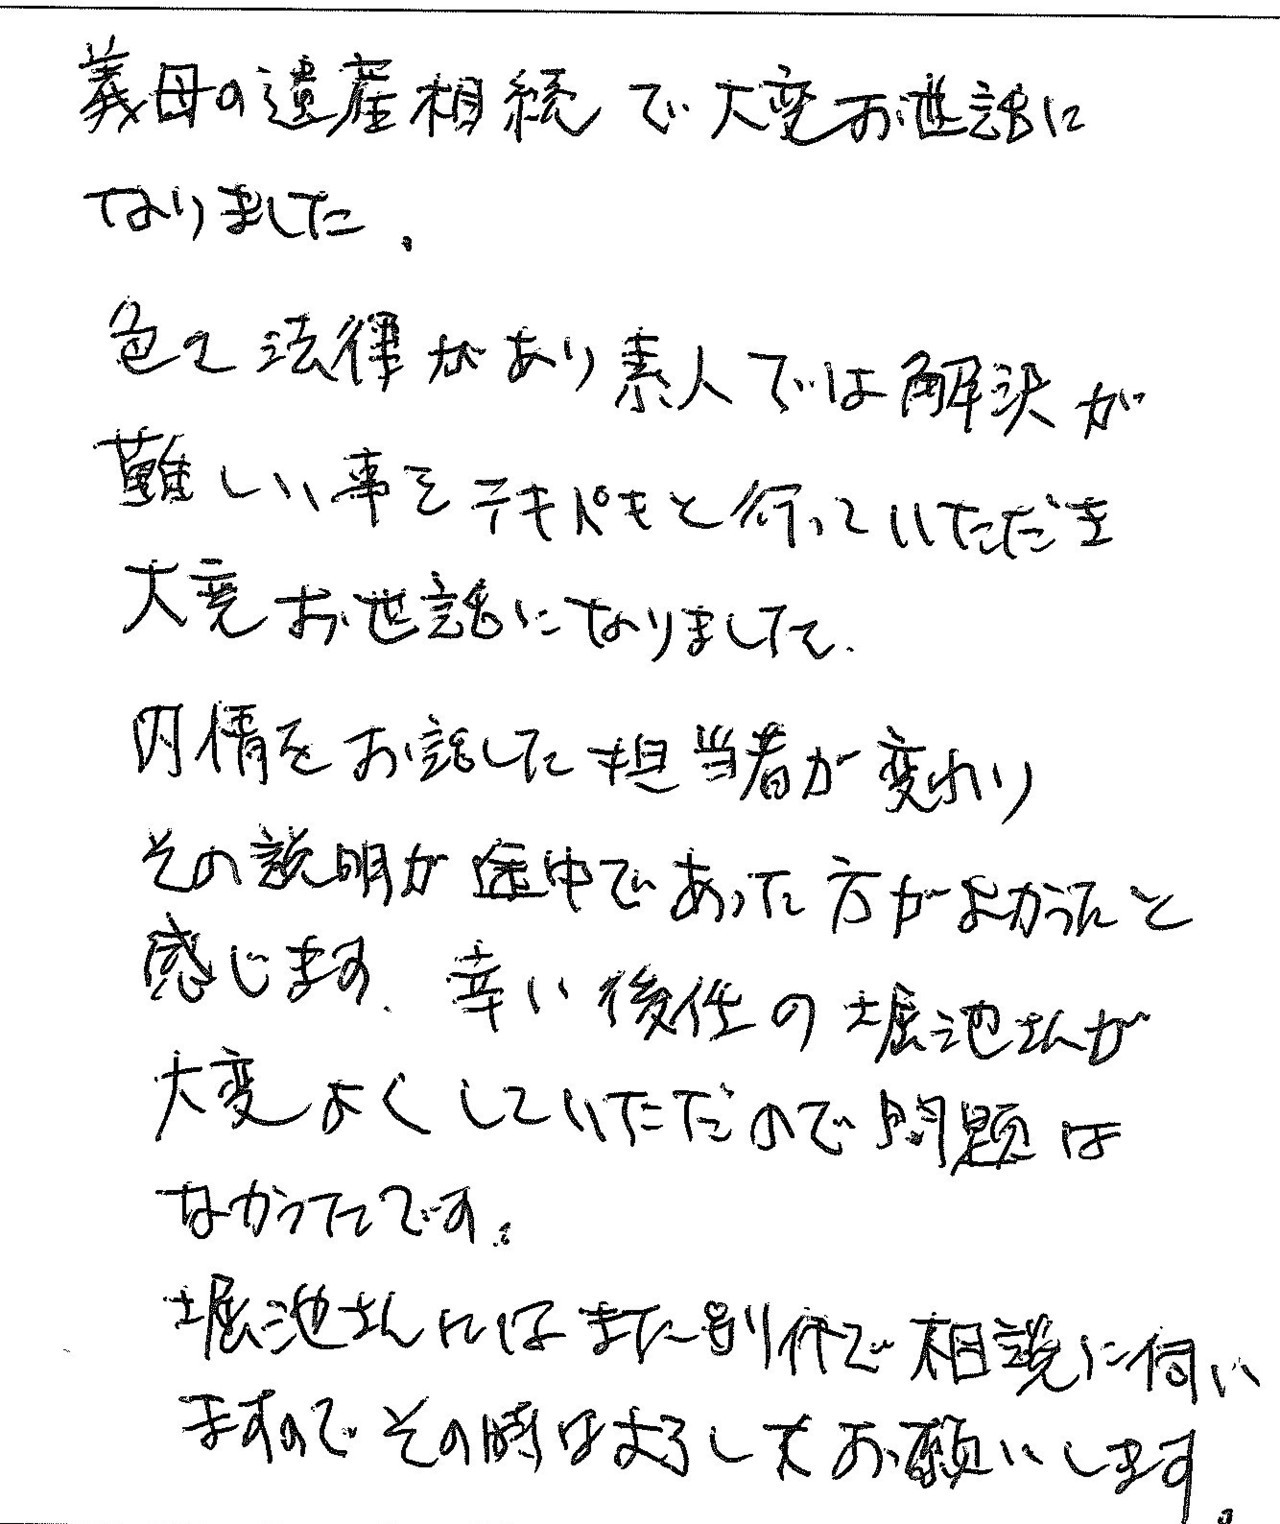 義母の遺産相続で大変お世話に
なりました。
色々法律があり素人では解決が
難しい事をテキパキと行っていただき
大変お世話になりました。
内情をお話した担当者が変わり
その説明が途中であった方がよかったと
感じます。幸い後任の堀池さんが
大変よくしていただだので問題は
なかったです。
堀池さんにはまた別件で相談に伺い
ますのでその時はよろしくお願いします。